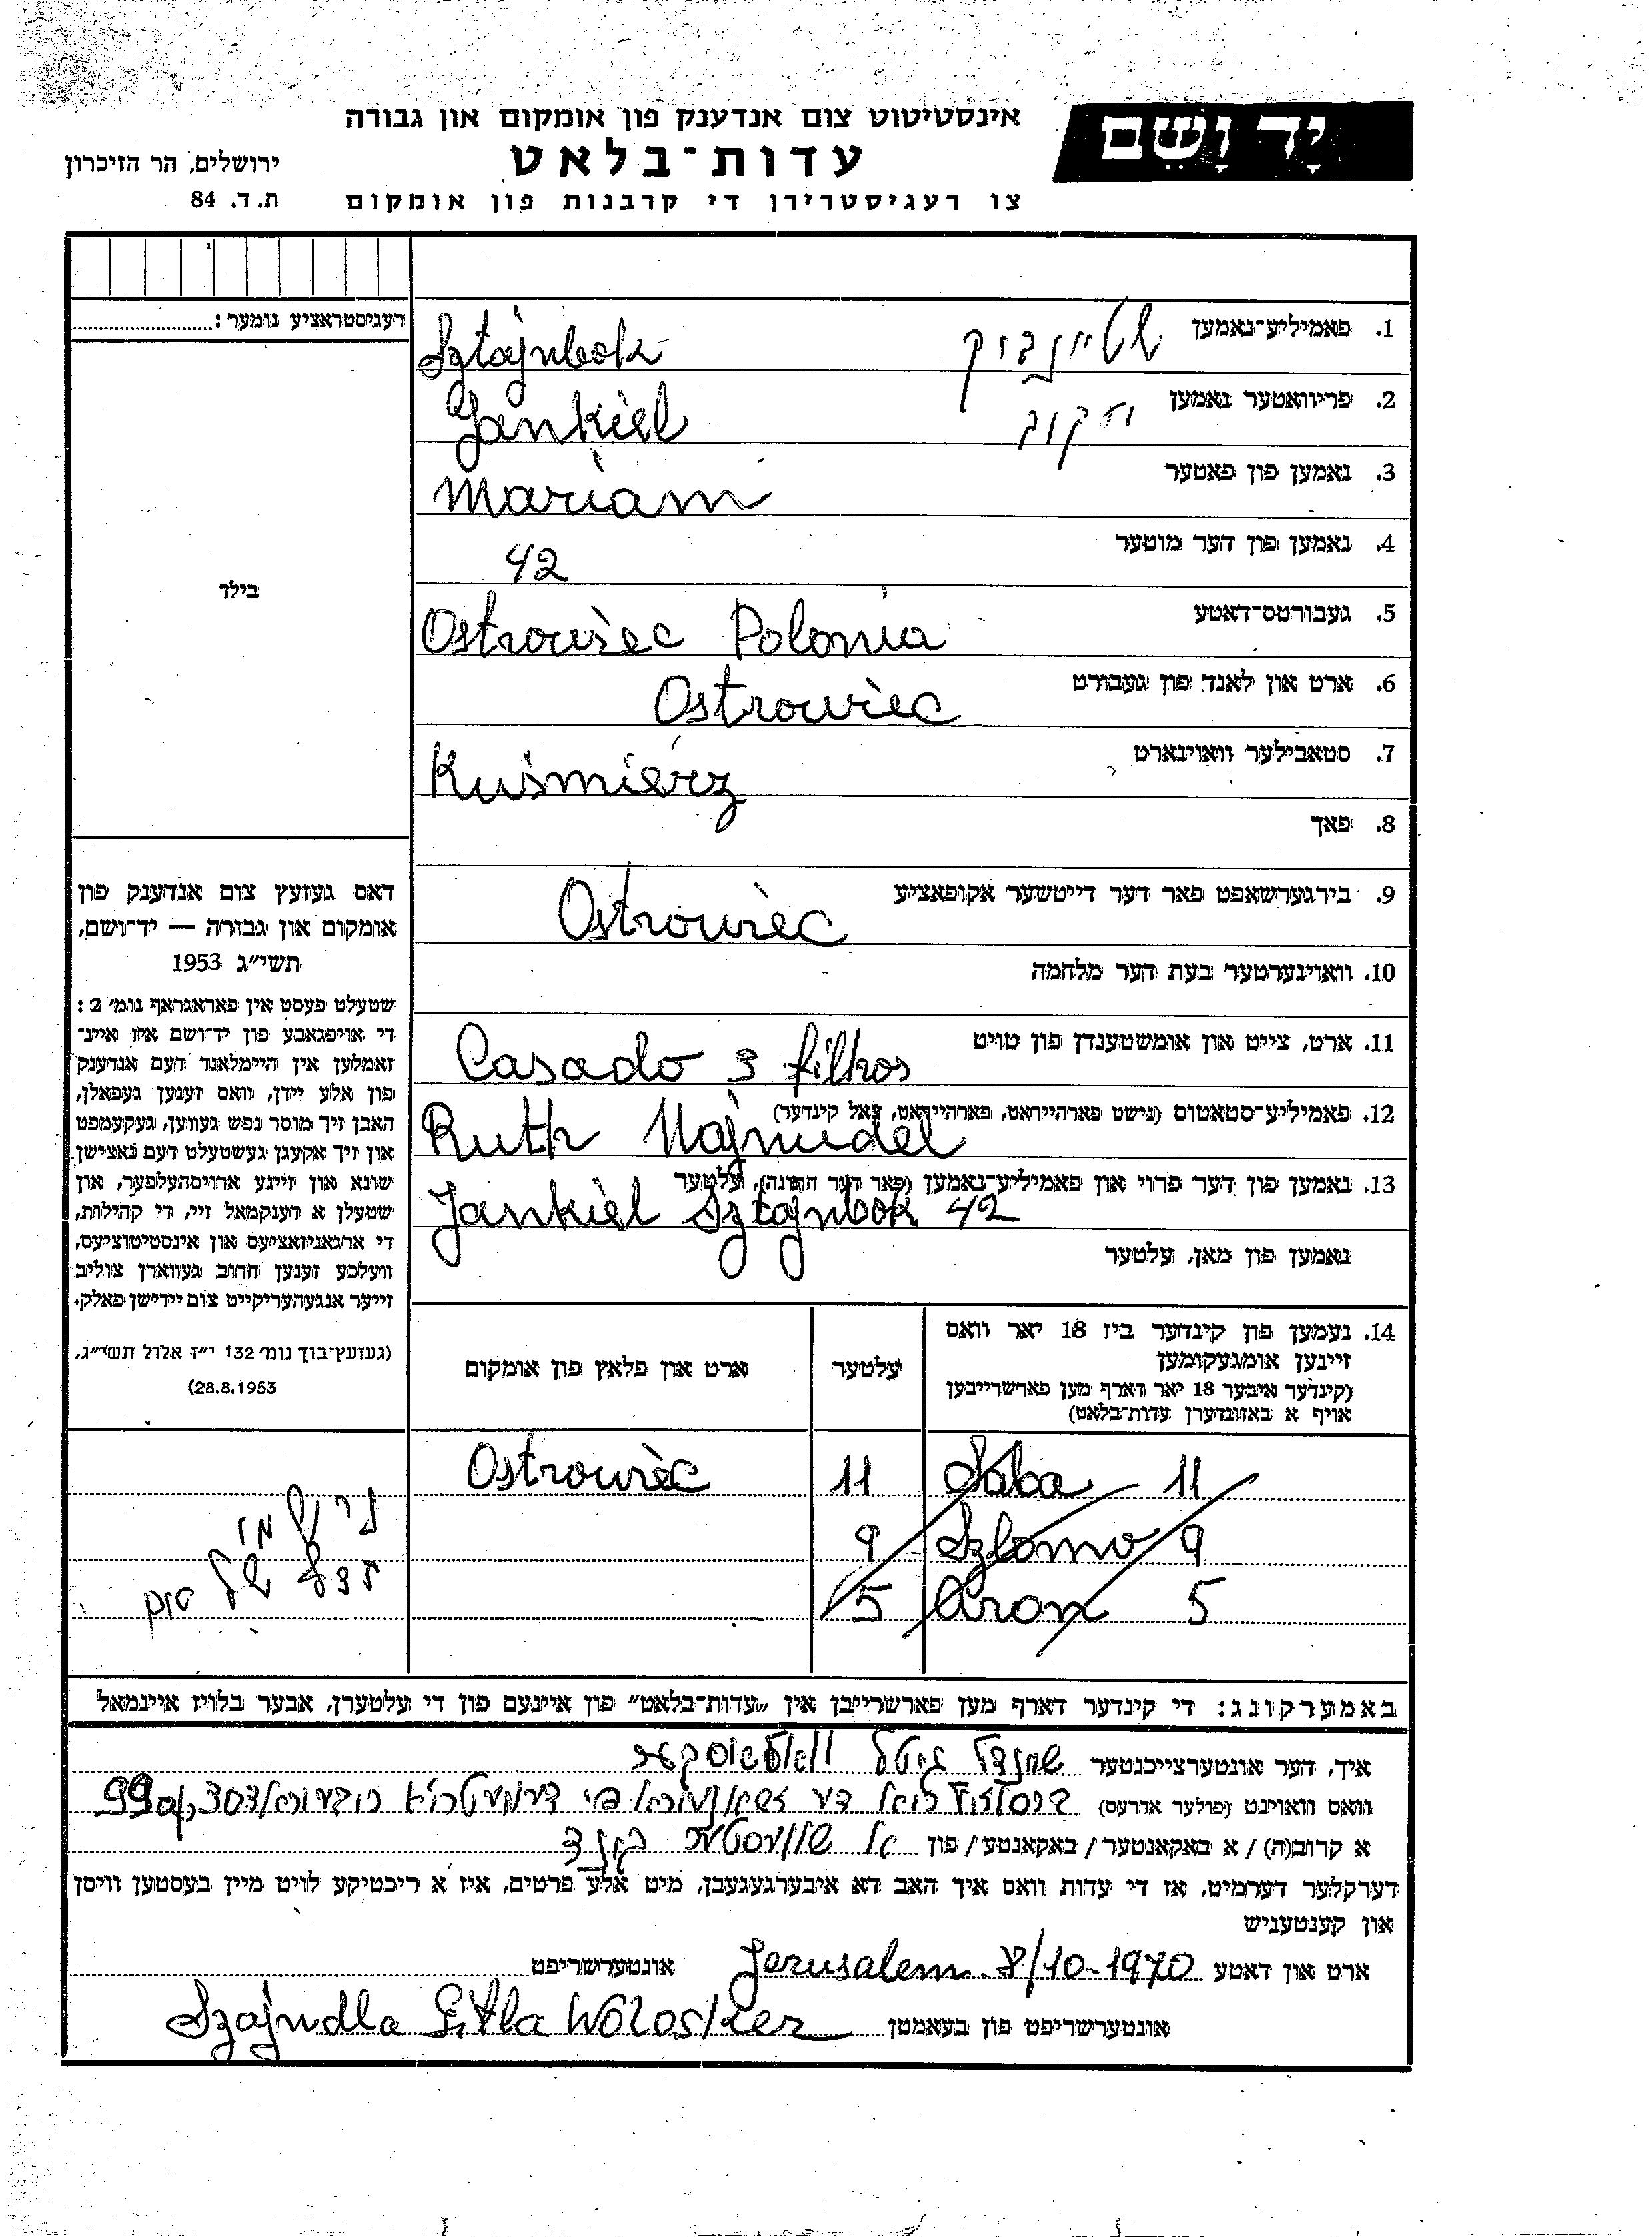 יד ושם
אינסטיטוט צום אנדענק פון אומקום און גבורה
עדות־בלאט
צו רעגיסטרירן די קרבנות פון אומקום
ירושלים, הר הזיכרון
ת. ד. 84
רעגיסטראציע נומער:
בילד
1. פאמיליע־נאמען שטיינבוק Sztajnbok
2. פריוואטער נאמען יעקוב Jankiel
3. נאמען פון פאטער Mariam
4. נאמען פון דער מוטער 42
5. געבורטס־דאטע Ostrowiec Polonia
6. ארט און לאנד פון געבורט Ostrowiec
7. סטאבילער וואוינארט Kuśmierz
8. פאך
9. בירגערשאפט פאר דער דייטשער אקופאציע Ostrowiec
10. וואוינערטער בעת דער מלחמה
11. ארט, צייט און אומשטענדן פון טויט Casado 3 filhos
12. פאמיליע־סטאטוס (נישט פארהייראט, פארהייראט, צאל קינדער) Ruth Najnudel
13. נאמען פון דער פרוי און פאמיליע־נאמען (פאר דער חתונה), עלטער Jankiel Sztajnbok 42
נאמען פון מאן, עלטער
דאס געזעץ צום אנדענק פון
אומקום און גבורה — יד־ושם,
תשי״ג 1953
שטעלט פעסט אין פאראגראף נומ׳ 2:
די אויפגאבע פון יד־ושם איז איינ־
זאמלען אין היימלאנד דעם אנדענק
פון אלע יידן, וואס זענען געפאלן,
האבן זיך מוסר נפש געווען, געקעמפט
און זיך אקעגן געשטעלט דעם נאצישן
שונא און זיינע ארויסהעלפער, און
שטעלן א דענקמאל זיי, די קהילות,
די ארגאניזאציעס און אינסטיטוציעס,
וועלכע זענען חרוב געווארן צוליב
זייער אנגעהעריקייט צום יידישן פאלק.
(געזעץ־בוך נומ׳ 132 י״ז אלול תשי״ג,
28.8.1953)
14. נעמען פון קינדער ביז 18 יאר וואס
זיינען אומגעקומען
(קינדער איבער 18 יאר דארף מען פארשרייבן
אויף א באזונדערן עדות־בלאט)
עלטער
ארט און פלאץ פון אומקום
Saba 11 11 Ostrowiec
Szlomo 9 9
Aron 5 5
באמערקונג: די קינדער דארף מען פארשרייבן אין „עדות־בלאט״ פון איינעם פון די עלטערן, אבער בלויז איינמאל
איך, דער אונטערצייכנטער שיינדל גיטל
וואס וואוינט (פולער אדרעס) 99
א קרוב(ה) / א באקאנטער / באקאנטע / פון
דערקלער דערמיט, אז די עדות וואס איך האב דא איבערגעגעבן, מיט אלע פרטים, איז א ריכטיקע לויט מיין בעסטען וויסן
און קענטעניש
ארט און דאטע Jerusalem 8/10-1970 אונטערשריפט
אונטערשריפט פון בעאמטן Szajndla Gitla Woloszker